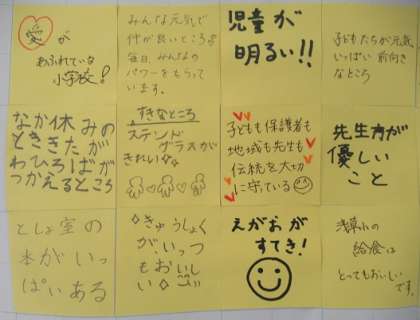 愛が
あふれている
小学校!
みんな元気で
仲が良いところ
毎日、みんなの
パワーをもらって
います。
児童が
明るい!!
子どもたちが元気
いっぱい 前向き
なところ
なか休みの
とききたが
わひろばが
つかえるところ
すきなところ
ステンド
グラスが
きれい
子どもも保護者も
地域も先生も
伝統を大切
に守っている
先生方が
優しい
こと
としょ室の
本がいっ
ぱいある
きゅうしょく
がいっつ
もおいし
い
えがおが
すてき!
浅草小の
給食は
とってもおいしい
です。